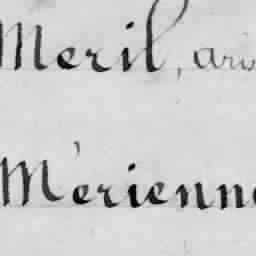 Meril, ari
Mérienne